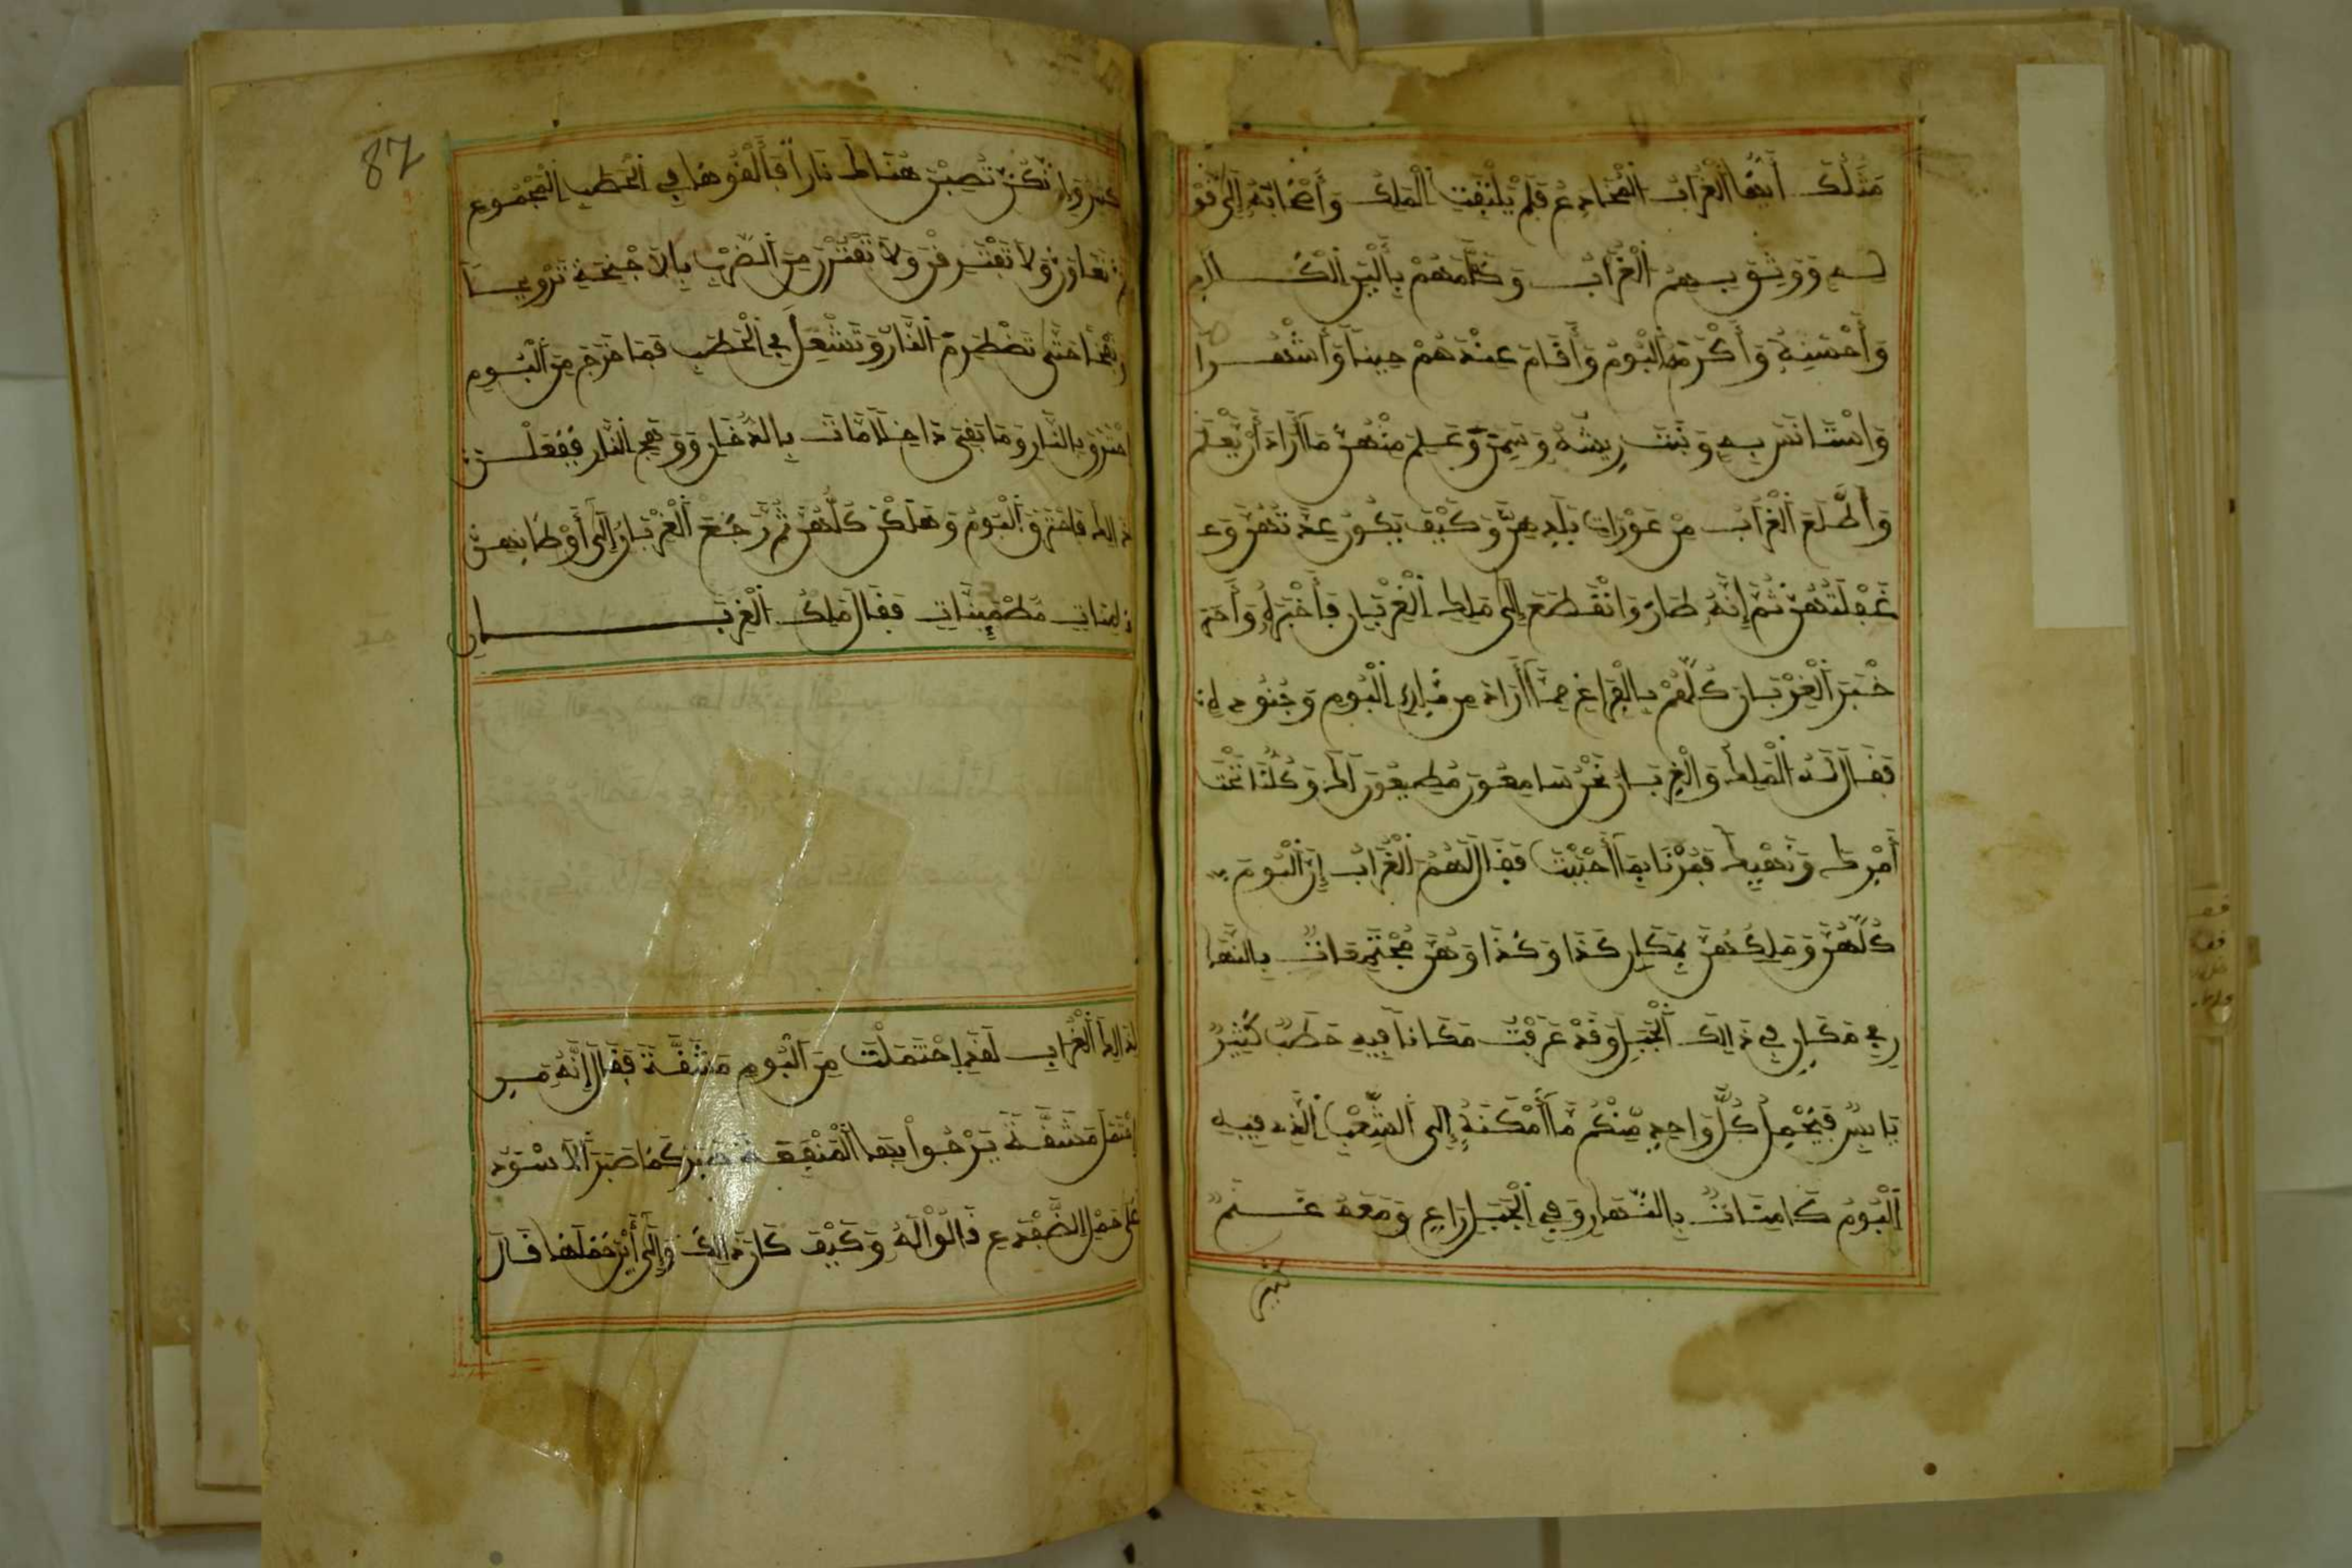 مَثَلُكَ أَيُّهَا الْغُرَابُ الْمُخَادِعُ فَلَمْ يَلْتَفِتِ الْمَلِكُ وَأَصْحَابُهُ إِلَى قَوْ
لِهِ وَوَثِقَ بِهِمُ الْغُرَابُ وَكَلَّمَهُمْ بِأَلْيَنِ الْكَلَامِ
وَأَحْسَنِهِ وَأَكْرَمَهُ الْبُومُ وَأَقَامَ عِنْدَهُمْ حِيناً وَأَشْهُراً
وَاسْتَأْنَسَ بِهِ وَنَبَتَ رِيشُهُ وَسَمِنَ وَعَلِمَ مِنْهُنَّ مَا أَرَادَ أَنْ يَعْلَمَ
وَاطَّلَعَ الْغُرَابُ مِنْ عَوْرَاتِ بَلَدِهِنَّ وَكَيْفَ يَكُونُ عِدَّتُهُنَّ وَعَدَ
غَفْلَتُهُنَّ ثُمَّ إِنَّهُ طَارَ وَانْقَطَعَ إِلَى مَلِكِ الْغِرْبَانِ فَأَخْبَرَهُ وَأَ
خْبَرَ الْغِرْبَانَ كُلَّهُمْ بِالْفَرَاغِ مِمَّا أَرَادَ مِنْ مَلِكِ الْبُومِ وَجُنُودِهِ
فَقَالَ لَهُ الْمَلِكُ وَالْغِرْبَانُ نَحْنُ سَامِعُونَ مُطِيعُونَ لَكَ وَكُلُّنَا تَحْتَ
أَمْرِكَ وَنَهْيِكَ فَمُرْنَا بِمَا أَحْبَبْتَ فَقَالَ لَهُمُ الْغُرَابُ إِنَّ الْبُومَ
كُلَّهُنَّ وَمَلِكُهُنَّ بِمَكَانِ كَذَا وَكَذَا وَهُنَّ مُجْتَمِعَاتٌ بِالنَّهَا
رِ فِي مَكَانٍ فِي ذَالِكَ الْجَبَلِ وَقَدْ عَرَفْتُ مَكَاناً فِيهِ حَطَبٌ كَثِيرٌ
يَابِسٌ فَيَحْمِلُ كُلُّ وَاحِدٍ مِنْكُمْ مَا أَمْكَنَهُ إِلَى الشِّعْبِ الَّذِي فِيهِ
الْبُومُ كَامِنَاتٌ بِالنَّهَارِ وَفِي الْجَبَلِ رَاعٍ وَمَعَهُ غَنَمٌ
87
نَكُنْ نُصِيبُ هُنَاكَ نَاراً فَأَلْقُوهَا فِي الْحَطَبِ الْمَجْمُوعِ
ثُمَّ تَعَاوَنَّ وَلَا تَفْتَرِقْنَ وَلَا تَفْتُرْنَ مِنَ الضَّرْبِ بِالْأَجْنِحَةِ تَرْوِيحاً
حَتَّى تَضْطَرِمَ النَّارُ وَتَشْعَلَ فِي الْحَطَبِ فَمَا خَرَجَ مِنَ الْبُومِ
احْتَرَقَ بِالنَّارِ وَمَا بَقِيَ دَاخِلاً مَاتَ بِالدُّخَانِ وَوَهَجِ النَّارِ فَفَعَلْنَ
ذَالِكَ فَاحْتَرَقَ الْبُومُ وَهَلَكْنَ كُلُّهُنَّ ثُمَّ رَجَعَ الْغِرْبَانُ إِلَى أَوْطَانِهِنَّ
مُطْمَئِنَّاتٍ فَقَالَ مَلِكُ الْغِرْبَانِ
لِذَالِكَ الْغُرَابِ لَقَدِ احْتَمَلْتَ مِنَ الْبُومِ مَشَقَّةً فَقَالَ إِنَّهُ مَنِ
احْتَمَلَ مَشَقَّةً يَرْجُوا بِهَا الْمَنْفَعَةَ صَبَرَ كَمَا صَبَرَ الْأَسْوَدُ
عَلَى حَمْلِ الضِّفْدَعِ قَالُوا لَهُ وَكَيْفَ كَانَ ذَالِكَ وَإِلَى أَيْنَ حَمَلَهَا قَالَ